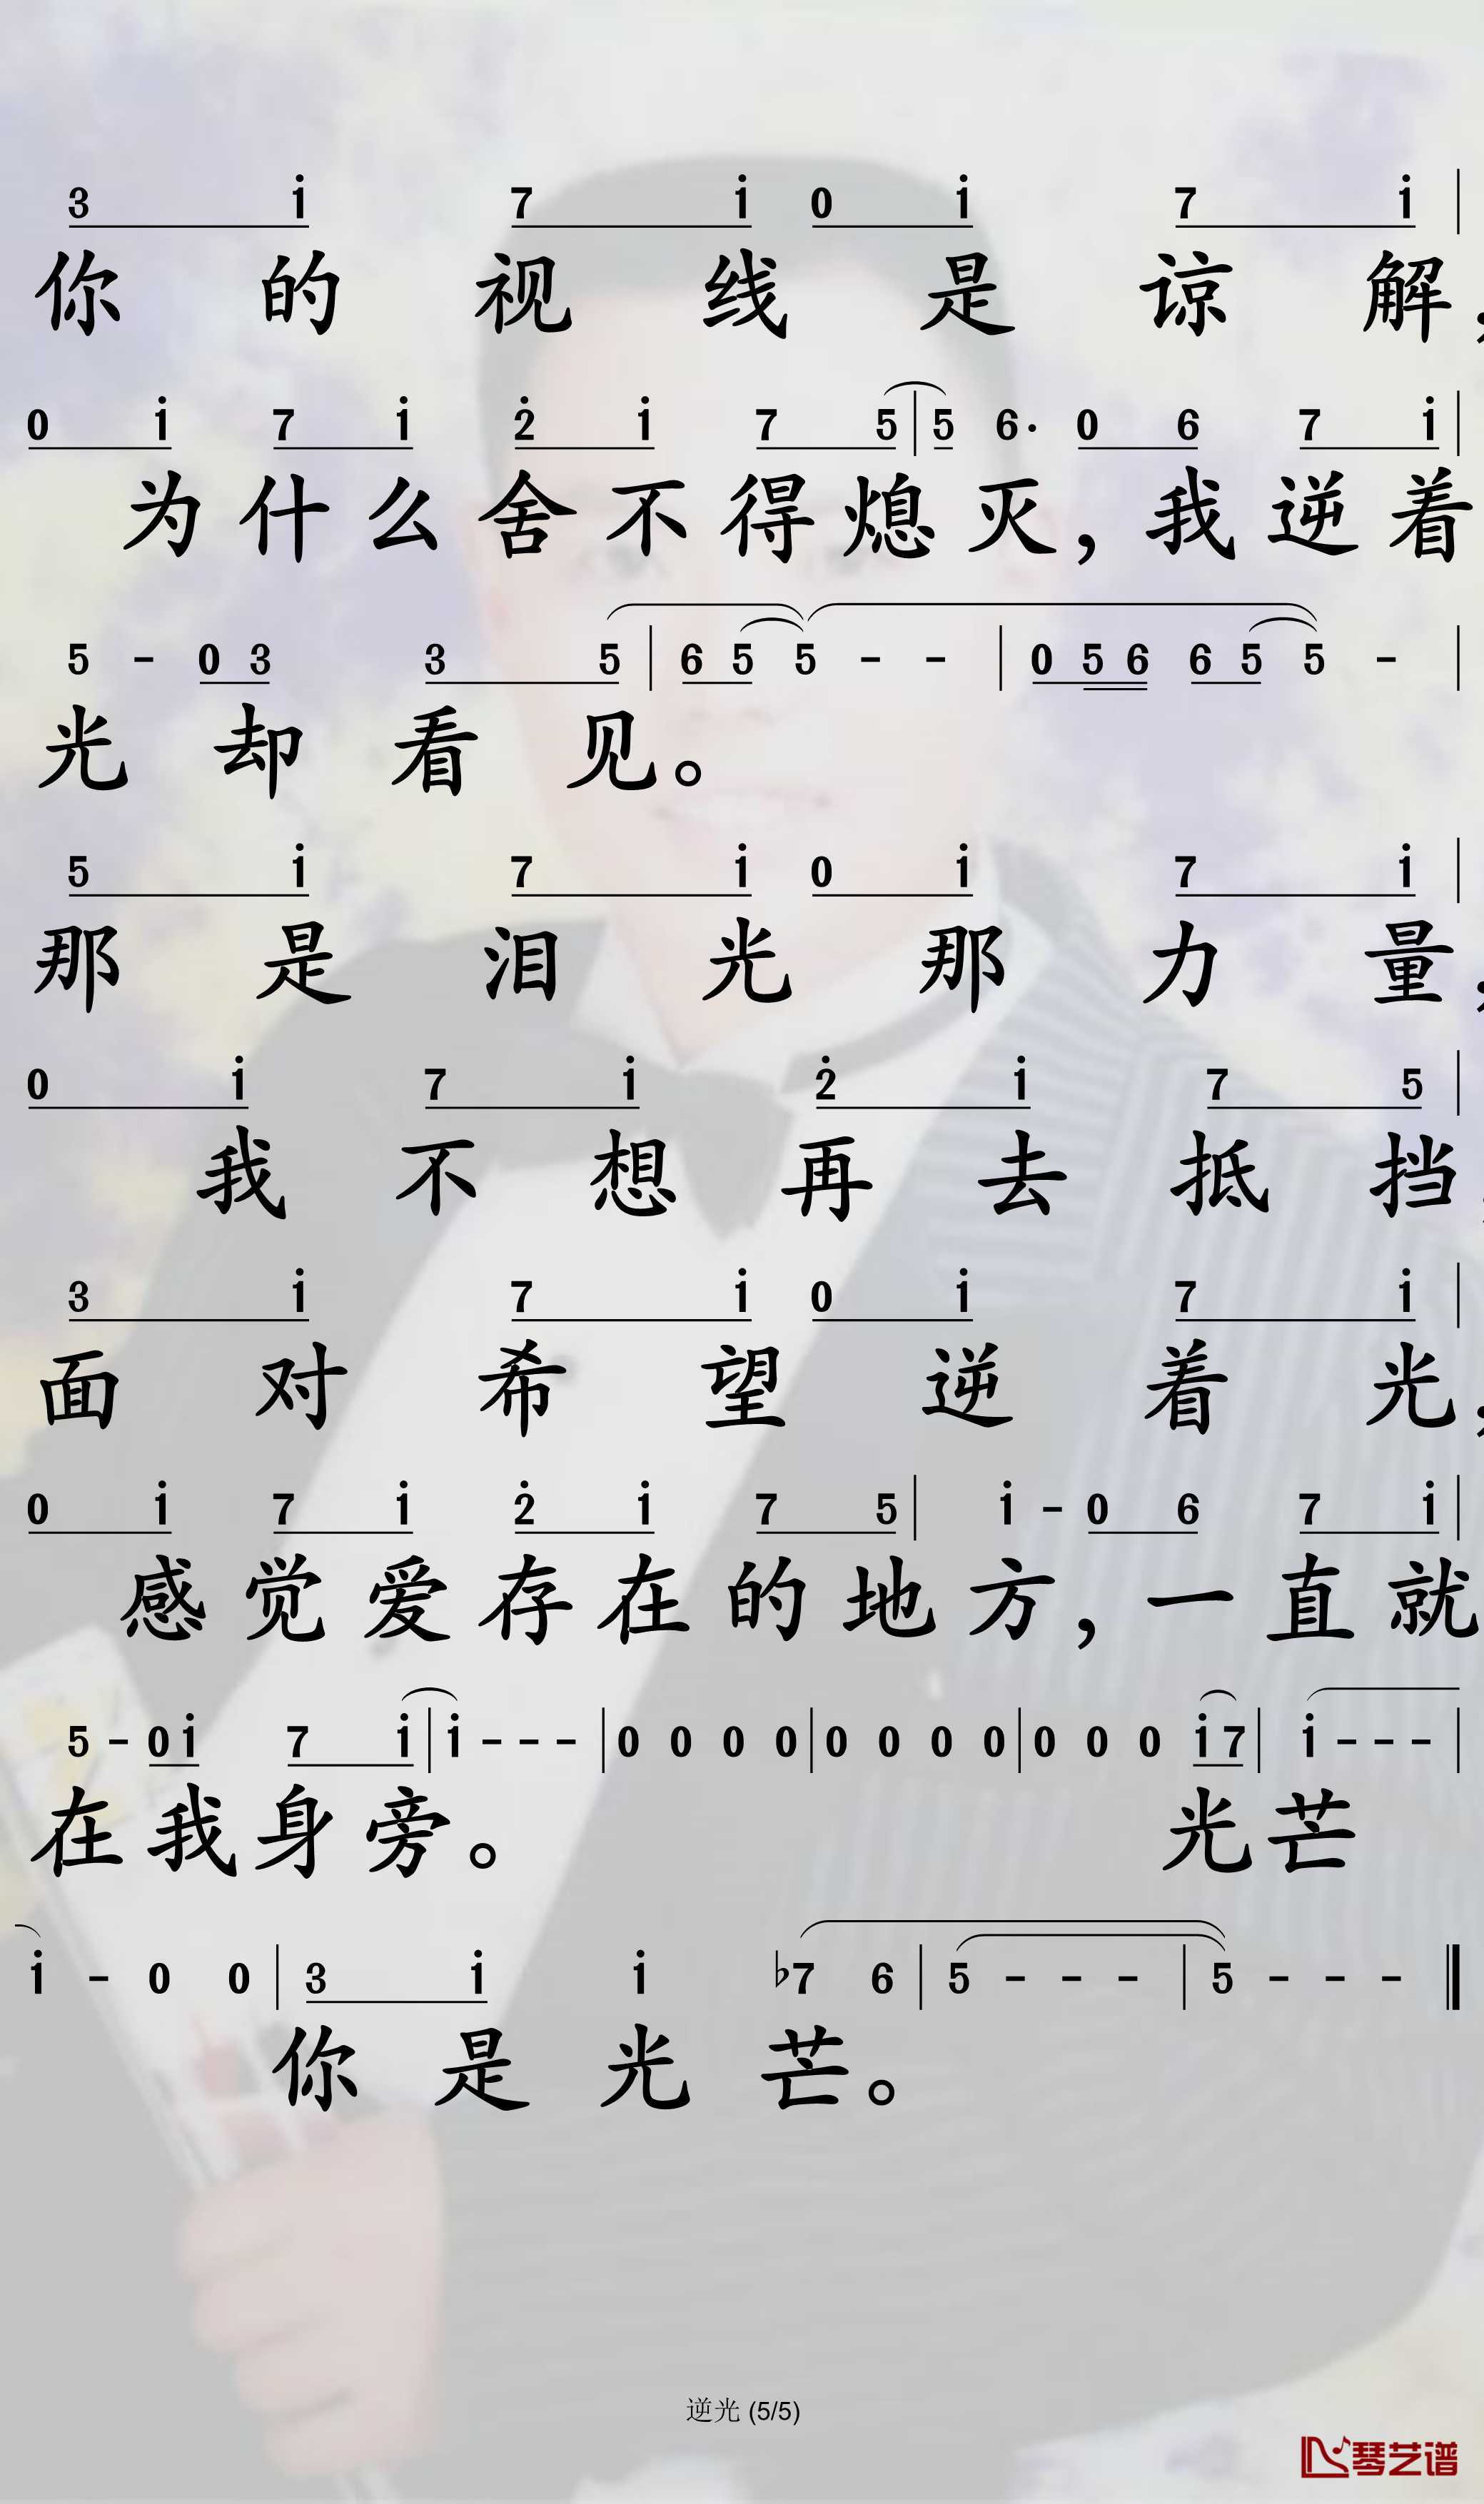 3 i 7 i 0 i 7 i |
你的视线是谅解，
0 i 7 i 2̇ i 7 5 | 5 6· 0 6 7 i |
为什么舍不得熄灭，我逆着
5 - 0 3 3 5 | 6 5 5 - - | 0 5 6 6 5 5 - |
光却看见。
5 i 7 i 0 i 7 i |
那是泪光那力量，
0 i 7 i 2̇ i 7 5 |
我不想再去抵挡，
3 i 7 i 0 i 7 i |
面对希望逆着光，
0 i 7 i 2̇ i 7 5 | i - 0 6 7 i |
感觉爱存在的地方，一直就
5 - 0 i 7 i | i - - - | 0 0 0 0 | 0 0 0 0 | 0 0 0 i 7 | i - - - |
在我身旁。 光芒
i - 0 0 | 3 i i ♭7 6 | 5 - - - | 5 - - - ‖
你是光芒。
逆光 (5/5)
琴艺谱